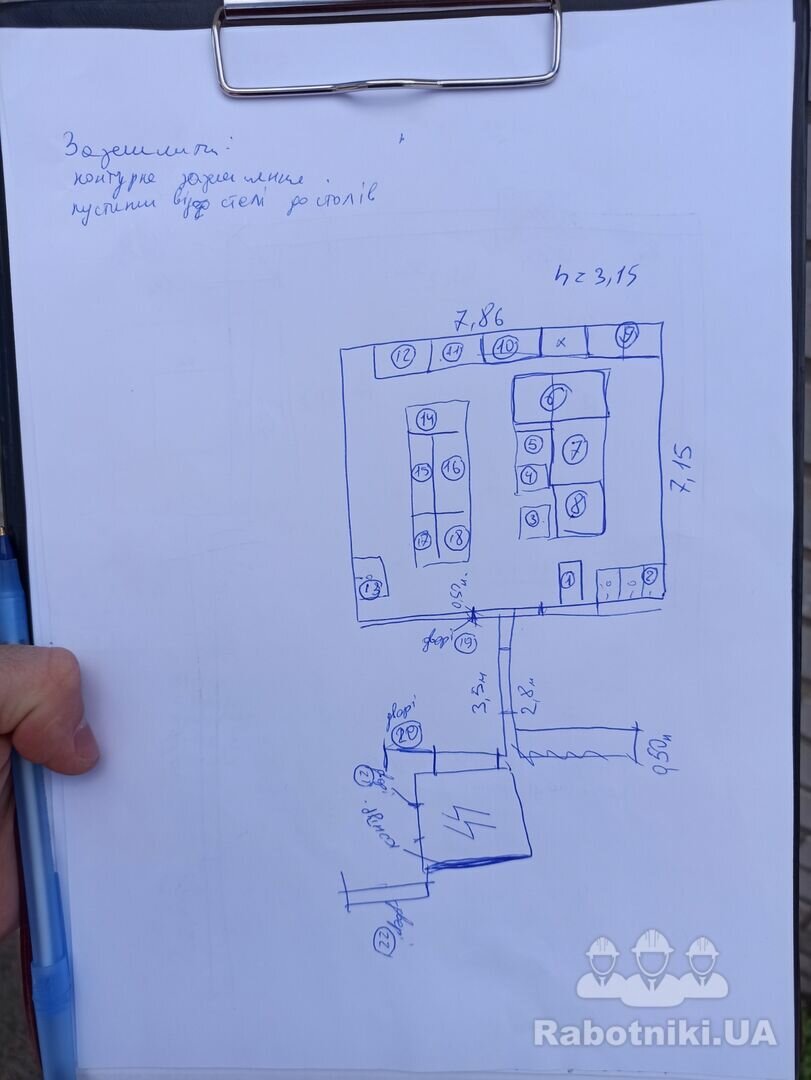 Заземлити:
контурне заземлення.
пустити від стелі до столів
h=3,15
7,86
12 11 10 x 9
14
6
5 7
15 16
4
7,15
3 8
17 18
13
1 2
0,52м.
двері 19
3,5м 2,8м
двері 20
0,50м
21 двері
двері 22
Rabotniki.UA